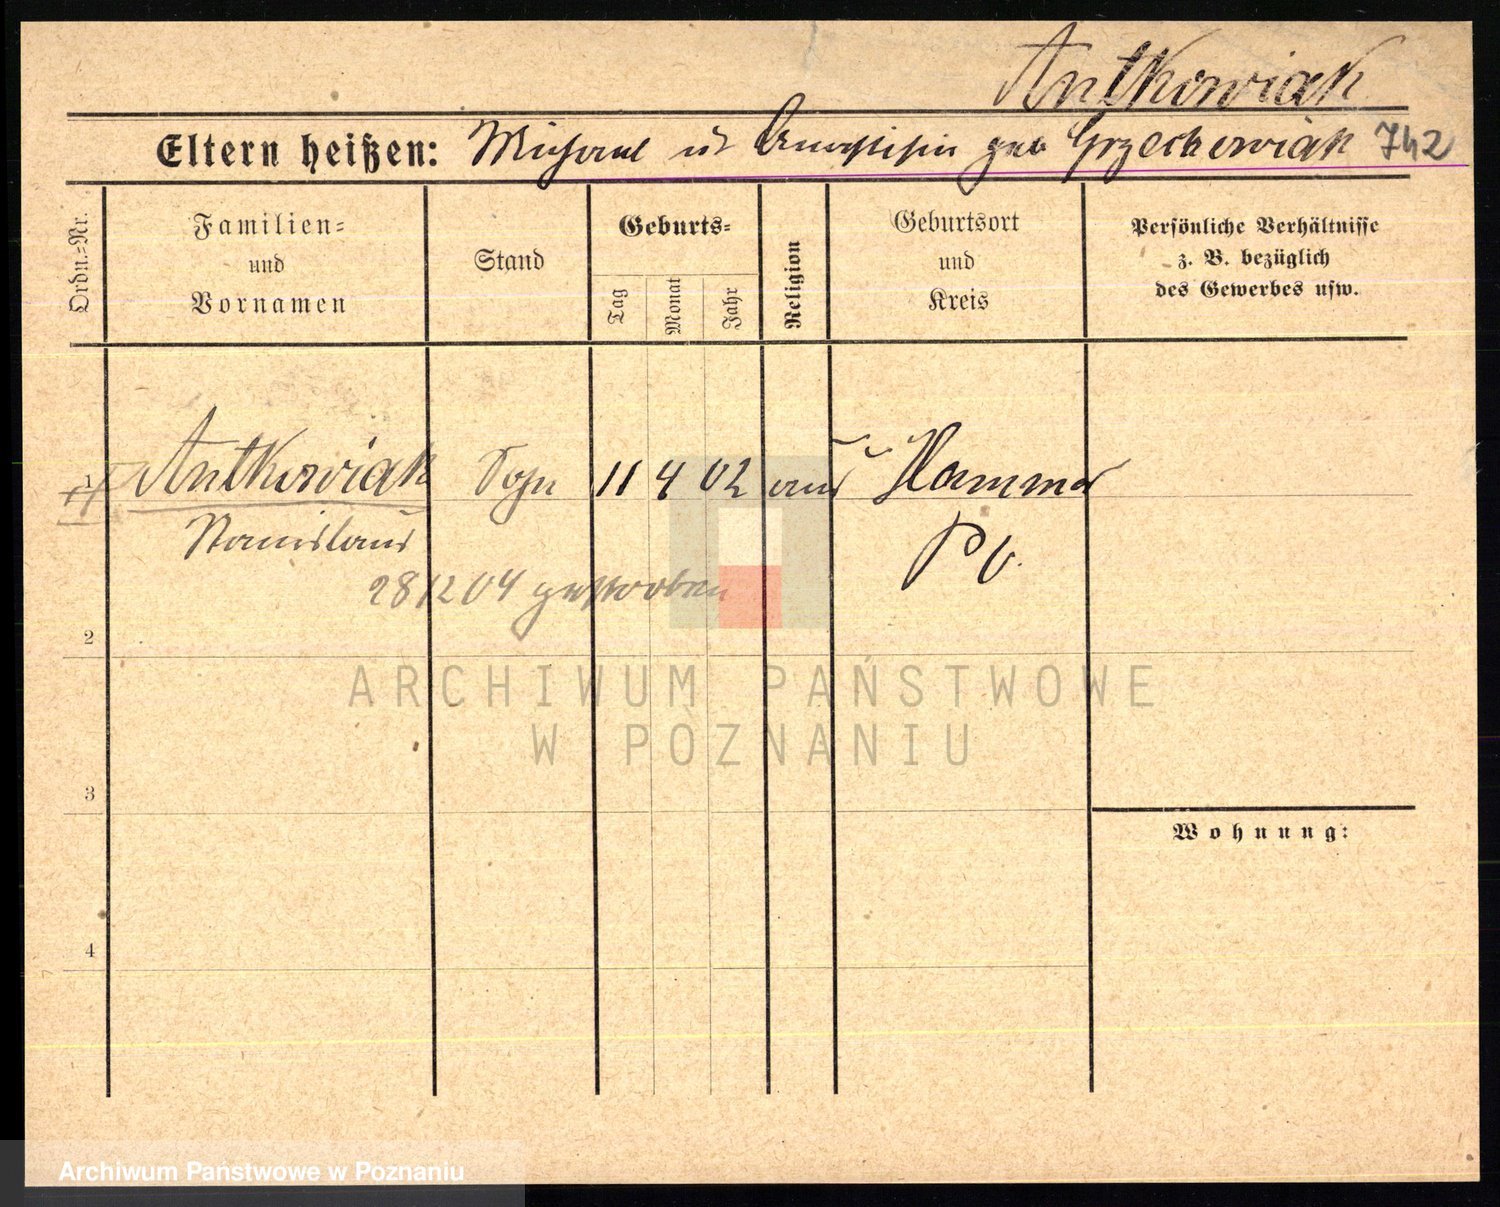 Antkowiak
Eltern heißen: Michael u geb Grzeskowiak 742
Ordn.-Nr.
Familien-
und
Vornamen
Stand
Geburts-
Tag
Monat
Jahr
Religion
Geburtsort
und
Kreis
Persönliche Verhältnisse
z. B. bezüglich
des Gewerbes usw.
1 Antkowiak Sohn 11 4 02 Hammer
Stanislaus
P
28/12 04 gestorben
2
ARCHIWUM PAŃSTWOWE
W POZNANIU
3
Wohnung:
4
Archiwum Państwowe w Poznaniu